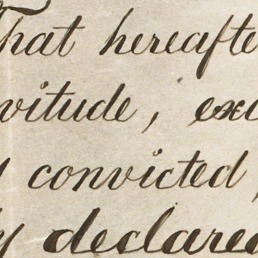 That hereafte
vitude, exc
y convicted,
y declared